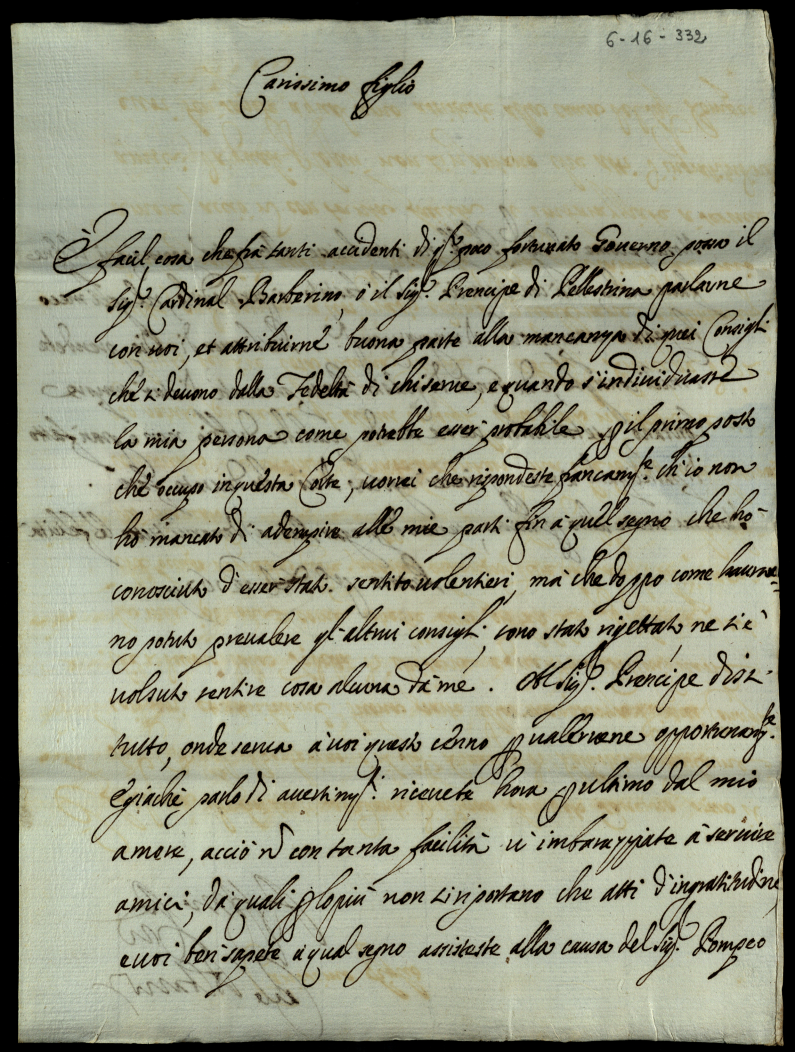 6-16-332
Carissimo figlio
È facil cosa che frà tanti accidenti di q.to poco fortunato Governo possa il
Sig.r Cardinal Barberino, ò il Sig.r Prencipe di Pellestrina parlarne
con voi, et attribuirne buona parte alla mancanza di quei Consigli
che si devono dalla Fedeltà di chi serve, e quando s'individuasse
la mia persona come potrebbe esser probabile p il primo posto
che occupo in questa Corte, vorrei che rispondeste francam.te ch'io non
hò mancato di adempire alle mie parti fin à quel segno che hò
conosciuto d'esser stato sentito volentieri, mà che doppo come
no potuto prevalere gl'altrui consigli, sono stato rigettato ne si è
volsuto sentire cosa alcuna dà me. Al Sig.r Prencipe dissi
tutto, onde serva à voi questo cenno p valervene opportunam.te
E giache parlo di avertim.ti ricevete hora p ultimo dal mio
amore, acciò nō con tanta facilità v'imbarazziate à servire
amici, dà quali p lo più non si riportano che atti d'ingratitudine
e voi ben sapete à qual segno assisteste alla causa del Sig.r Pompeo